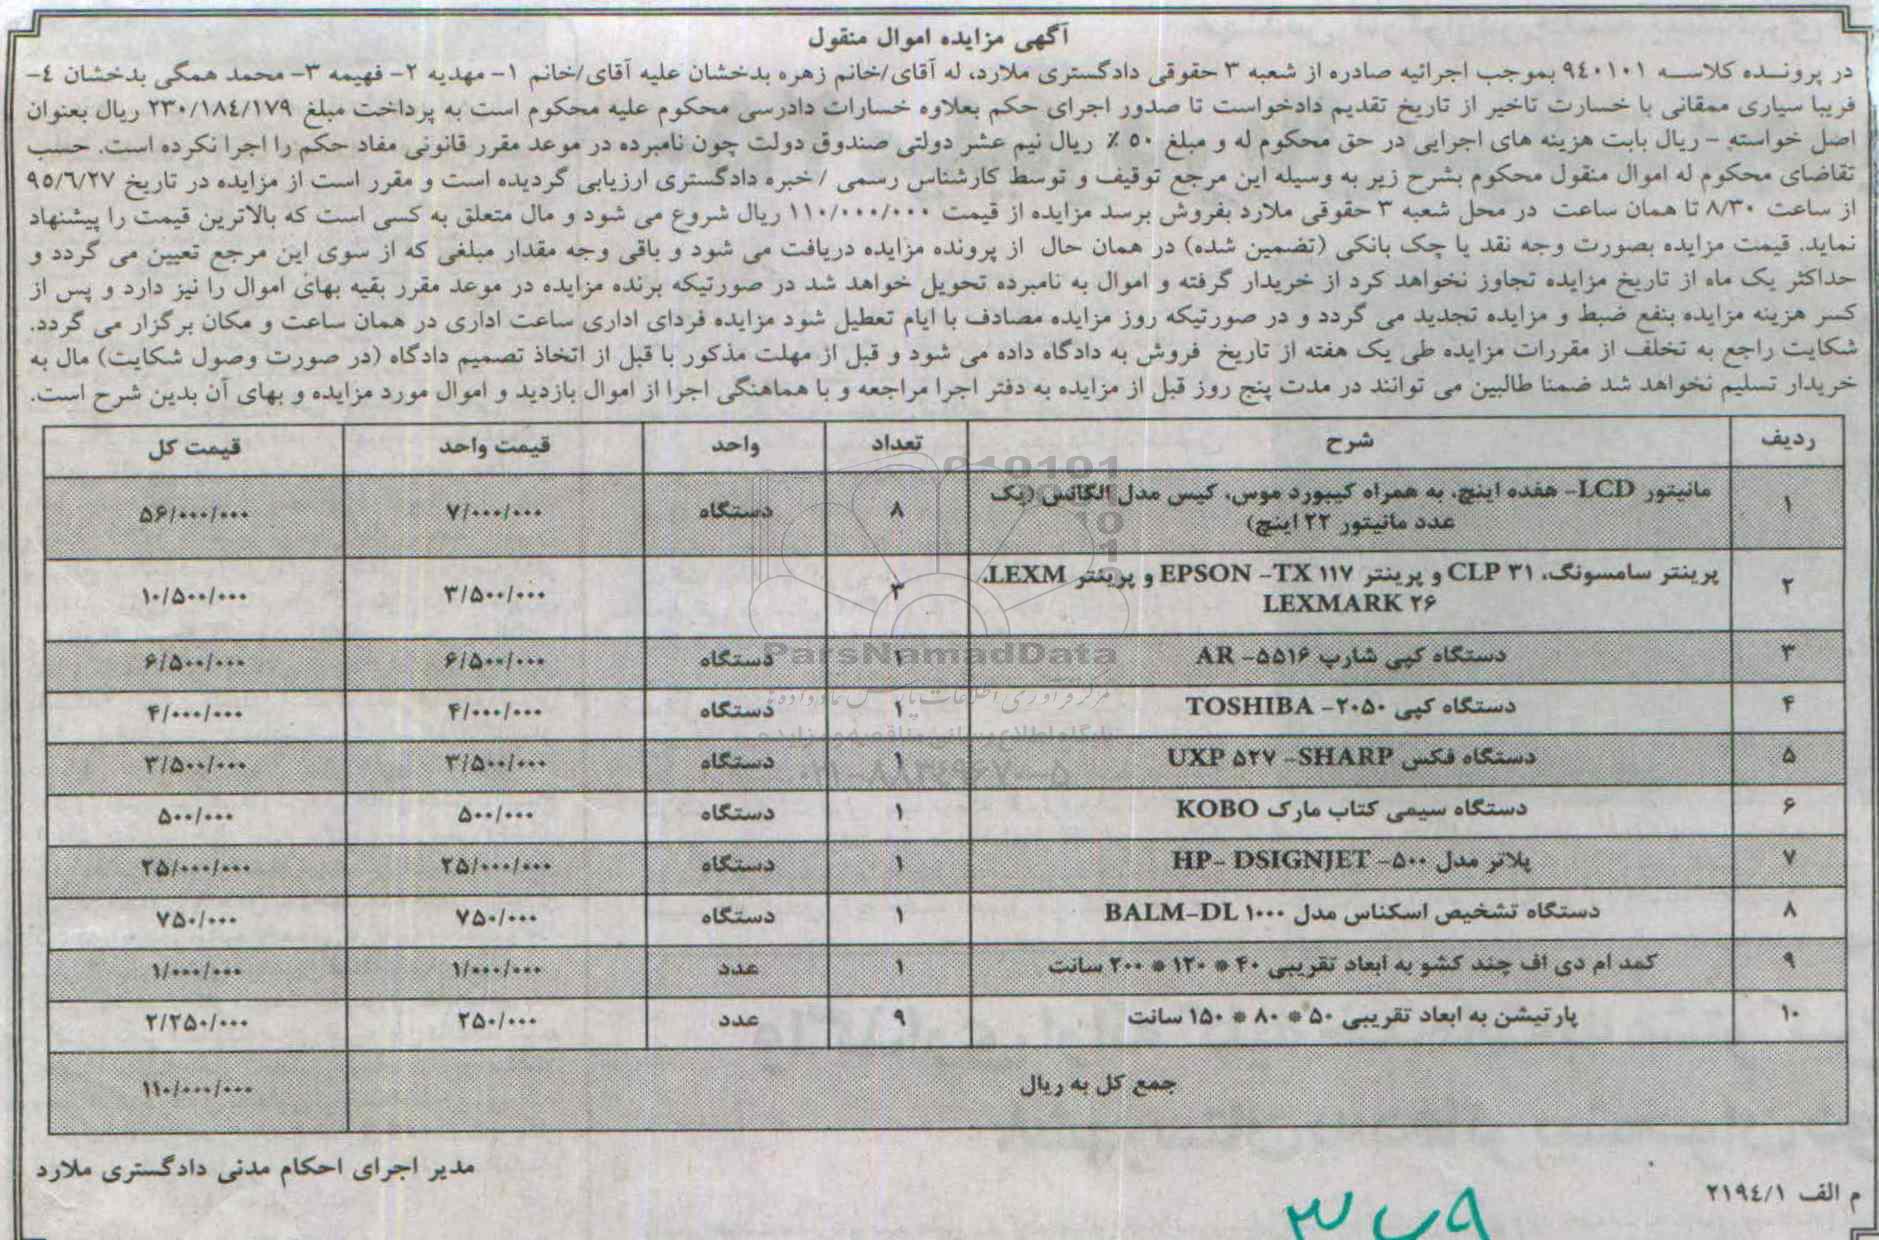 آگهی مزایده اموال منقول
در پرونده کلاسه ۹٤۰۱۰۱ بموجب اجرائیه صادره از شعبه ۳ حقوقی دادگستری ملارد، له آقای/خانم زهره بدخشان علیه آقای/خانم ۱- مهدیه ۲- فهیمه ۳- محمد همگی بدخشان ٤-
فریبا سیاری ممقانی با خسارت تاخیر از تاریخ تقدیم دادخواست تا صدور اجرای حکم بعلاوه خسارات دادرسی محکوم علیه محکوم است به پرداخت مبلغ ۲۳۰/۱۸٤/۱۷۹ ریال بعنوان
اصل خواسته - ریال بابت هزینه های اجرایی در حق محکوم له و مبلغ ۵۰ ٪ ریال نیم عشر دولتی صندوق دولت چون نامبرده در موعد مقرر قانونی مفاد حکم را اجرا نکرده است. حسب
تقاضای محکوم له اموال منقول محکوم بشرح زیر به وسیله این مرجع توقیف و توسط کارشناس رسمی /خبره دادگستری ارزیابی گردیده است و مقرر است از مزایده در تاریخ ۹۵/٦/۲۷
از ساعت ۸/۳۰ تا همان ساعت در محل شعبه ۳ حقوقی ملارد بفروش برسد مزایده از قیمت ۱۱۰/۰۰۰/۰۰۰ ریال شروع می شود و مال متعلق به کسی است که بالاترین قیمت را پیشنهاد
نماید. قیمت مزایده بصورت وجه نقد یا چک بانکی (تضمین شده) در همان حال از پرونده مزایده دریافت می شود و باقی وجه مقدار مبلغی که از سوی این مرجع تعیین می گردد و
حداکثر یک ماه از تاریخ مزایده تجاوز نخواهد کرد از خریدار گرفته و اموال به نامبرده تحویل خواهد شد در صورتیکه برنده مزایده در موعد مقرر بقیه بهای اموال را نیز دارد و پس از
کسر هزینه مزایده بنفع ضبط و مزایده تجدید می گردد و در صورتیکه روز مزایده مصادف با ایام تعطیل شود مزایده فردای اداری ساعت اداری در همان ساعت و مکان برگزار می گردد.
شکایت راجع به تخلف از مقررات مزایده طی یک هفته از تاریخ فروش به دادگاه داده می شود و قبل از مهلت مذکور با قبل از اتخاذ تصمیم دادگاه (در صورت وصول شکایت) مال به
خریدار تسلیم نخواهد شد ضمنا طالبین می توانند در مدت پنج روز قبل از مزایده به دفتر اجرا مراجعه و با هماهنگی اجرا از اموال بازدید و اموال مورد مزایده و بهای آن بدین شرح است.
ردیف شرح تعداد واحد قیمت واحد قیمت کل
۱ مانیتور LCD- هفده اینچ، به همراه کیبورد موس، کیس مدل الگانس (یک
عدد مانیتور ۲۲ اینچ) ۸ دستگاه ۷/۰۰۰/۰۰۰ ۵۶/۰۰۰/۰۰۰
۲ پرینتر سامسونگ، CLP ۳۱ و پرینتر EPSON -TX ۱۱۷ و پرینتر LEXM،
LEXMARK ۲۶ ۳ ۳/۵۰۰/۰۰۰ ۱۰/۵۰۰/۰۰۰
۳ دستگاه کپی شارپ AR -۵۵۱۶ ۱ دستگاه ۶/۵۰۰/۰۰۰ ۶/۵۰۰/۰۰۰
۴ دستگاه کپی TOSHIBA -۲۰۵۰ ۱ دستگاه ۴/۰۰۰/۰۰۰ ۴/۰۰۰/۰۰۰
۵ دستگاه فکس UXP ۵۲۷ -SHARP ۱ دستگاه ۳/۵۰۰/۰۰۰ ۳/۵۰۰/۰۰۰
۶ دستگاه سیمی کتاب مارک KOBO ۱ دستگاه ۵۰۰/۰۰۰ ۵۰۰/۰۰۰
۷ پلاتر مدل HP- DSIGNJET -۵۰۰ ۱ دستگاه ۲۵/۰۰۰/۰۰۰ ۲۵/۰۰۰/۰۰۰
۸ دستگاه تشخیص اسکناس مدل BALM-DL ۱۰۰۰ ۱ دستگاه ۷۵۰/۰۰۰ ۷۵۰/۰۰۰
۹ کمد ام دی اف چند کشو به ابعاد تقریبی ۴۰ * ۱۲۰ * ۲۰۰ سانت ۱ عدد ۱/۰۰۰/۰۰۰ ۱/۰۰۰/۰۰۰
۱۰ پارتیشن به ابعاد تقریبی ۵۰ * ۸۰ * ۱۵۰ سانت ۹ عدد ۲۵۰/۰۰۰ ۲/۲۵۰/۰۰۰
جمع کل به ریال ۱۱۰/۰۰۰/۰۰۰
ParsNamadData
مدیر اجرای احکام مدنی دادگستری ملارد
م الف ۲۱۹٤/۱